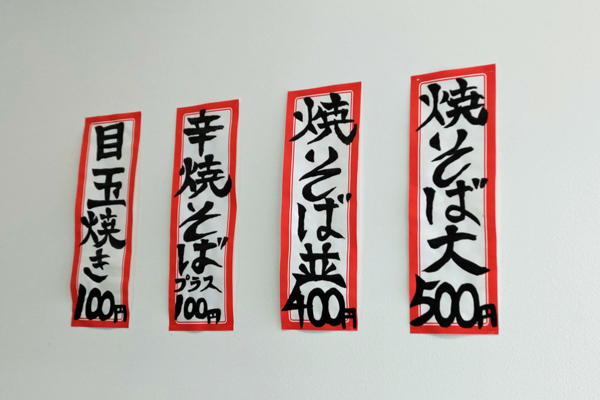 焼そば大
500円
焼そば並
400円
辛焼そば
プラス
100円
目玉焼き
100円